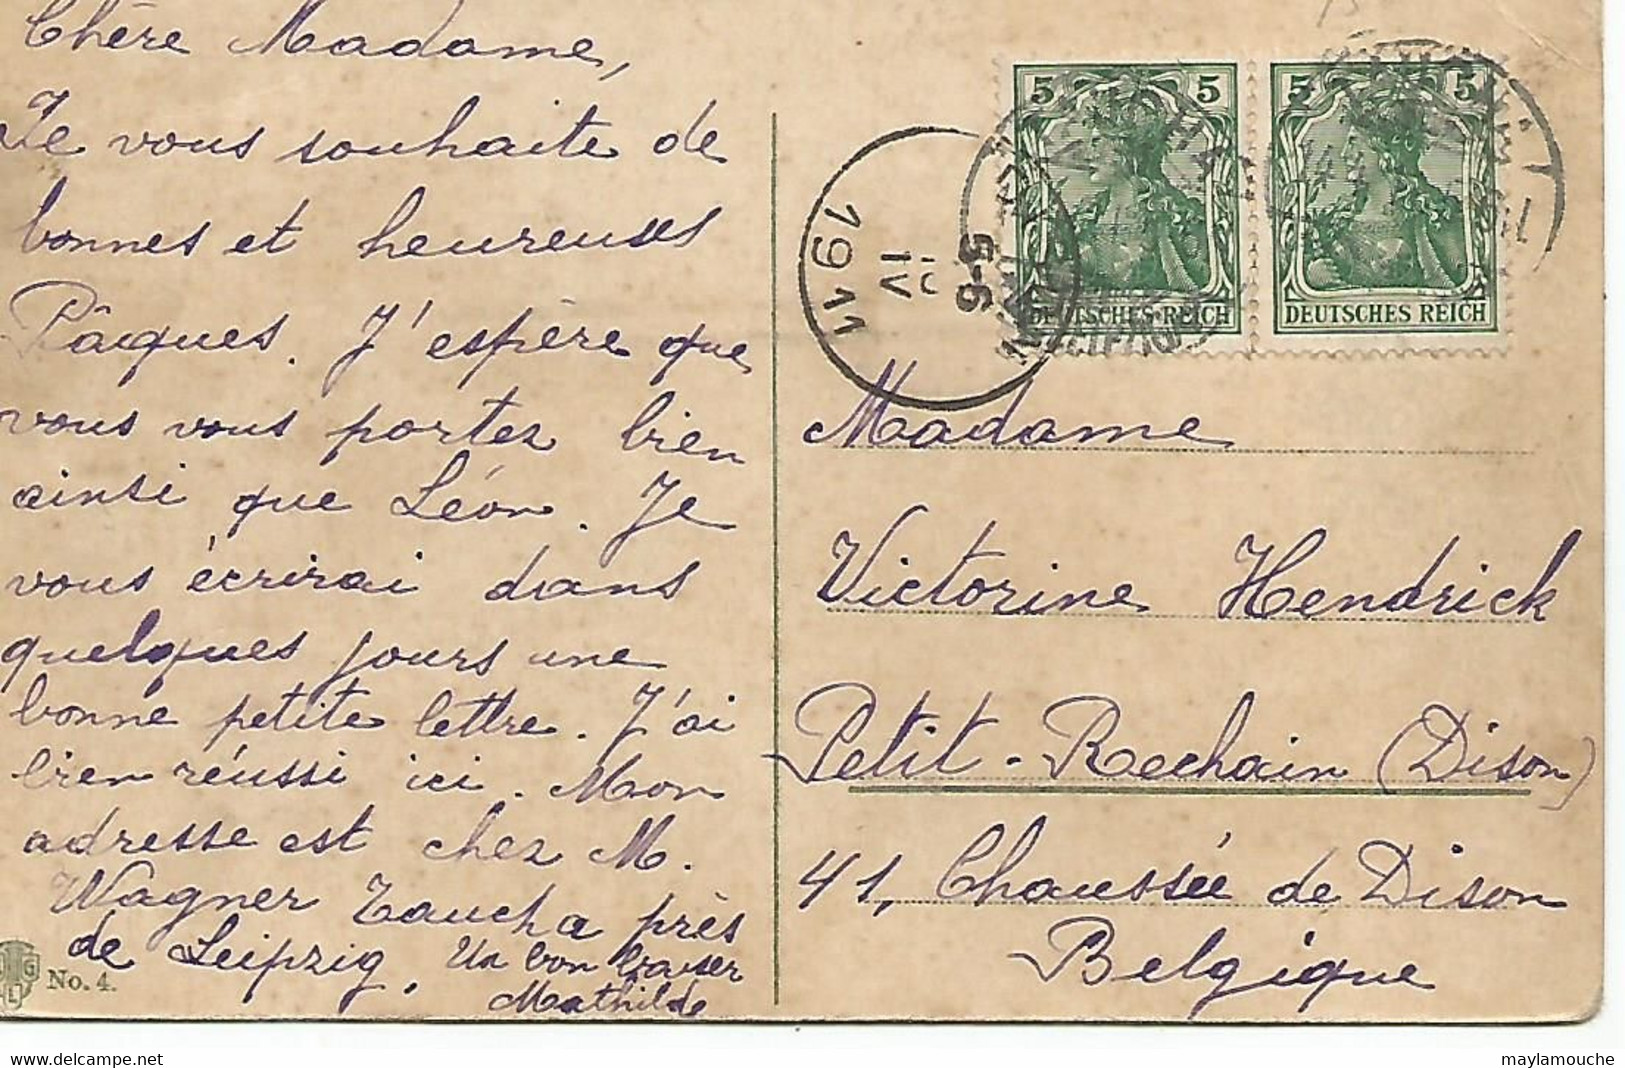 Chère Madame,
Je vous souhaite de
bonnes et heureuses
Pâques. J'espère que
vous vous portez bien
ainsi que Léon. Je
vous écrirai dans
quelques jours une
bonne petite lettre. J'ai
bien réussi ici. Mon
adresse est chez M.
Wagner Taucha près
de Leipzig. Un bon baiser
Mathilde
No. 4.
5 5
DEUTSCHES REICH
5 5
DEUTSCHES REICH
1911
IV
5-6
Madame
Victorine Hendrick
Petit-Rechain (Dison)
41, Chaussée de Dison
Belgique
www.delcampe.net
maylamouche